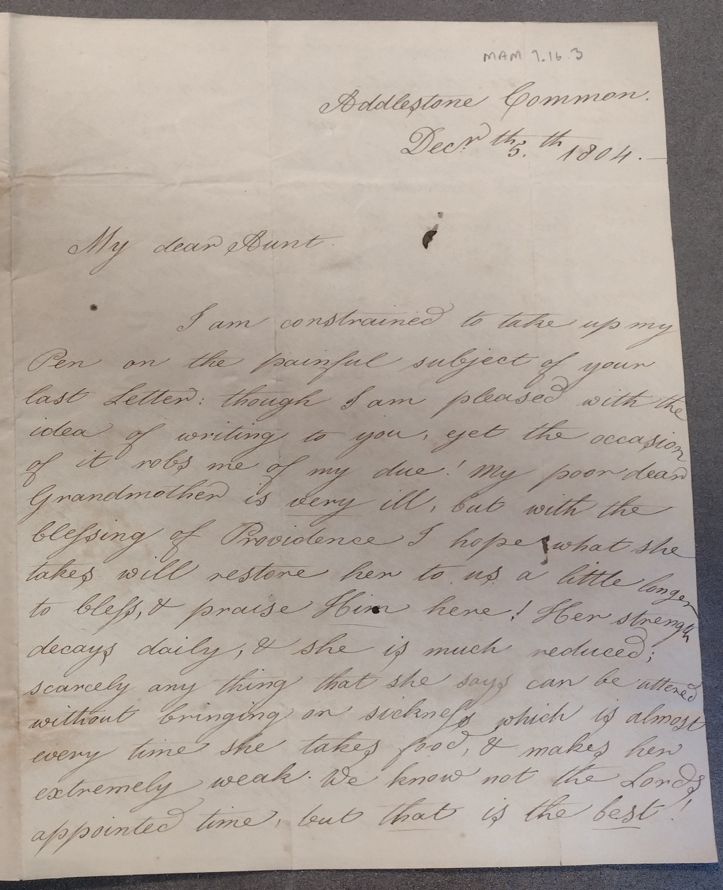 MAM 9.16.3
Addlestone Common.
Decr. th 5. th 1804. –
My dear Aunt.
I am constrained to take up my
Pen on the painful subject of your
last Letter: though I am pleased with the
idea of writing to you, yet the occasion
of it robs me of my due! My poor dear
Grandmother is very ill, but with the
blessing of Providence I hope what she
takes will restore her to us a little longer
to bless, & praise Him here! Her strength
decays daily, & she is much reduced;
scarcely any thing that she says can be uttered
without bringing on sickness which is almost
every time she takes food, & makes her
extremely weak. We know not the Lords
appointed time, but that is the best!